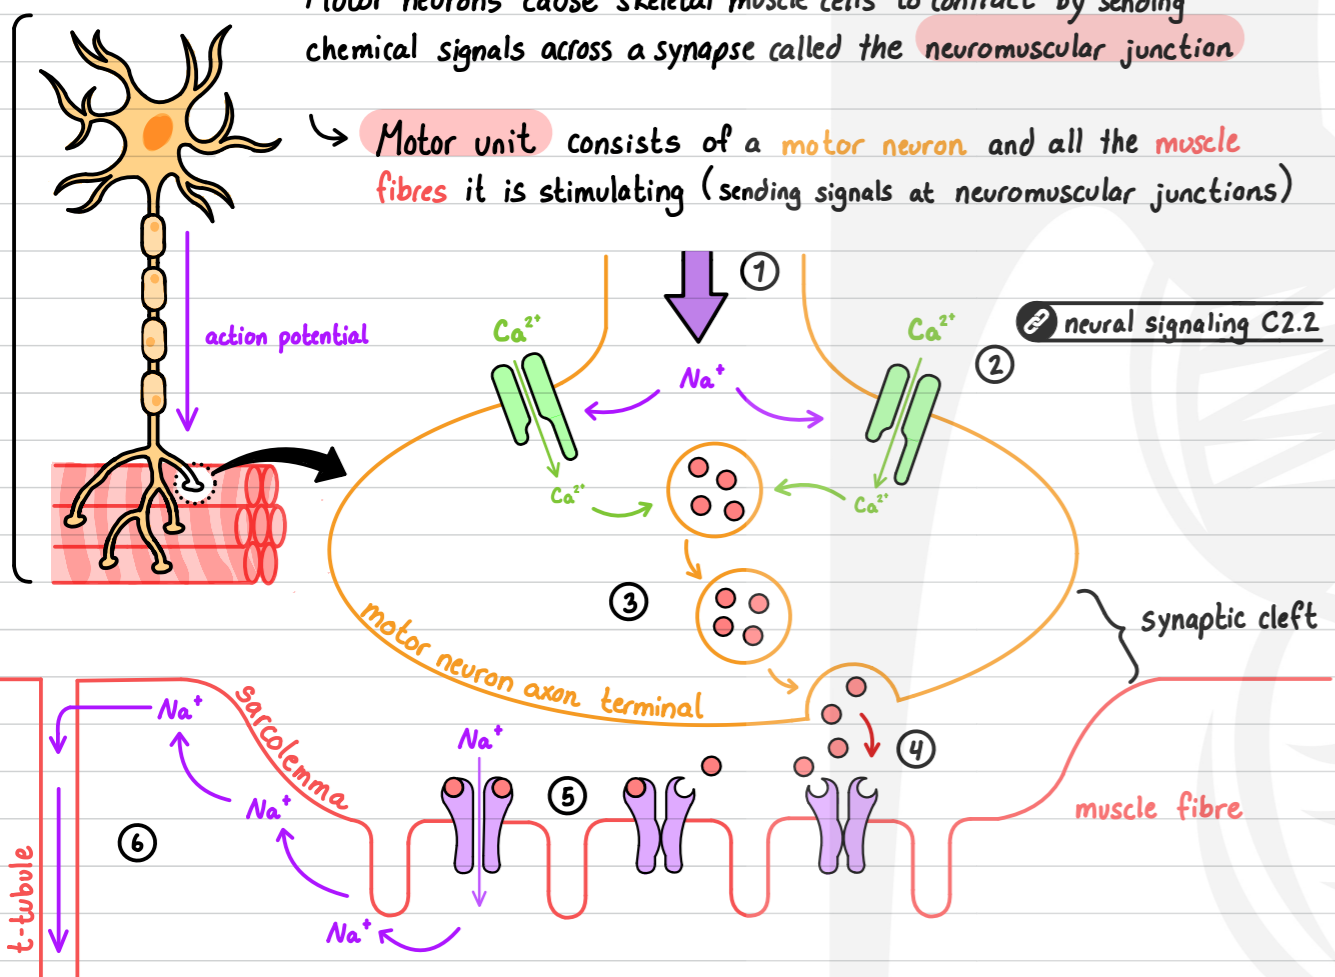 Motor neurons cause skeletal muscle cells to contract by sending
chemical signals across a synapse called the neuromuscular junction
Motor unit consists of a motor neuron and all the muscle
fibres it is stimulating (sending signals at neuromuscular junctions)
action potential
1
Ca²⁺
Na⁺
Ca²⁺
2
neural signaling C2.2
Ca²⁺
Ca²⁺
3
motor neuron axon terminal
synaptic cleft
Na⁺
sarcolemma
Na⁺
4
5
Na⁺
muscle fibre
6
t-tubule
Na⁺